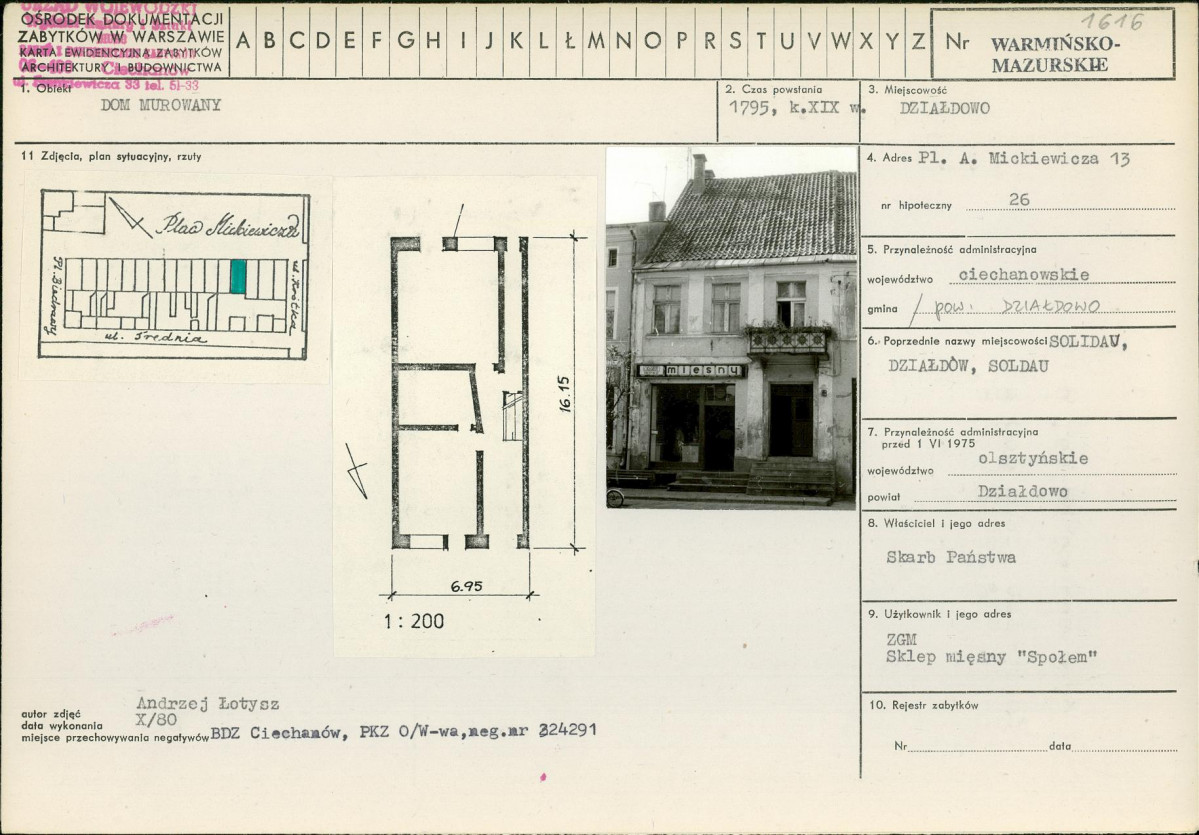 URZĄD WOJEWÓDZKI
OŚRODEK DOKUMENTACJI
ZABYTKÓW W WARSZAWIE
KARTA EWIDENCYJNA ZABYTKÓW
ARCHITEKTURY I BUDOWNICTWA
Ciechanów
33 tel. 51-33
A B C D E F G H I J K L Ł M N O P R S T U V W X Y Z
Nr
1616
WARMIŃSKO-
MAZURSKIE
1. Obiekt
DOM MUROWANY
2. Czas powstania
1795, k.XIX w.
3. Miejscowość
DZIAŁDOWO
11 Zdjęcia, plan sytuacyjny, rzuty
Plac Mickiewicza
Pl. Biedrawy
ul. Krótka
ul. Średnia
16.15
6.95
1 : 200
mięsny
4. Adres Pl. A. Mickiewicza 13
nr hipoteczny 26
5. Przynależność administracyjna
województwo ciechanowskie
gmina / pow. DZIAŁDOWO
6. Poprzednie nazwy miejscowości SOLIDAU,
DZIAŁDÓW, SOLDAU
7. Przynależność administracyjna
przed 1 VI 1975
województwo olsztyńskie
powiat Działdowo
8. Właściciel i jego adres
Skarb Państwa
9. Użytkownik i jego adres
ZGM
Sklep mięsny "Społem"
10. Rejestr zabytków
Nr data
autor zdjęć Andrzej Łotysz
data wykonania X/80
miejsce przechowywania negatywów BDZ Ciechanów, PKZ O/W-wa,neg.nr 324291